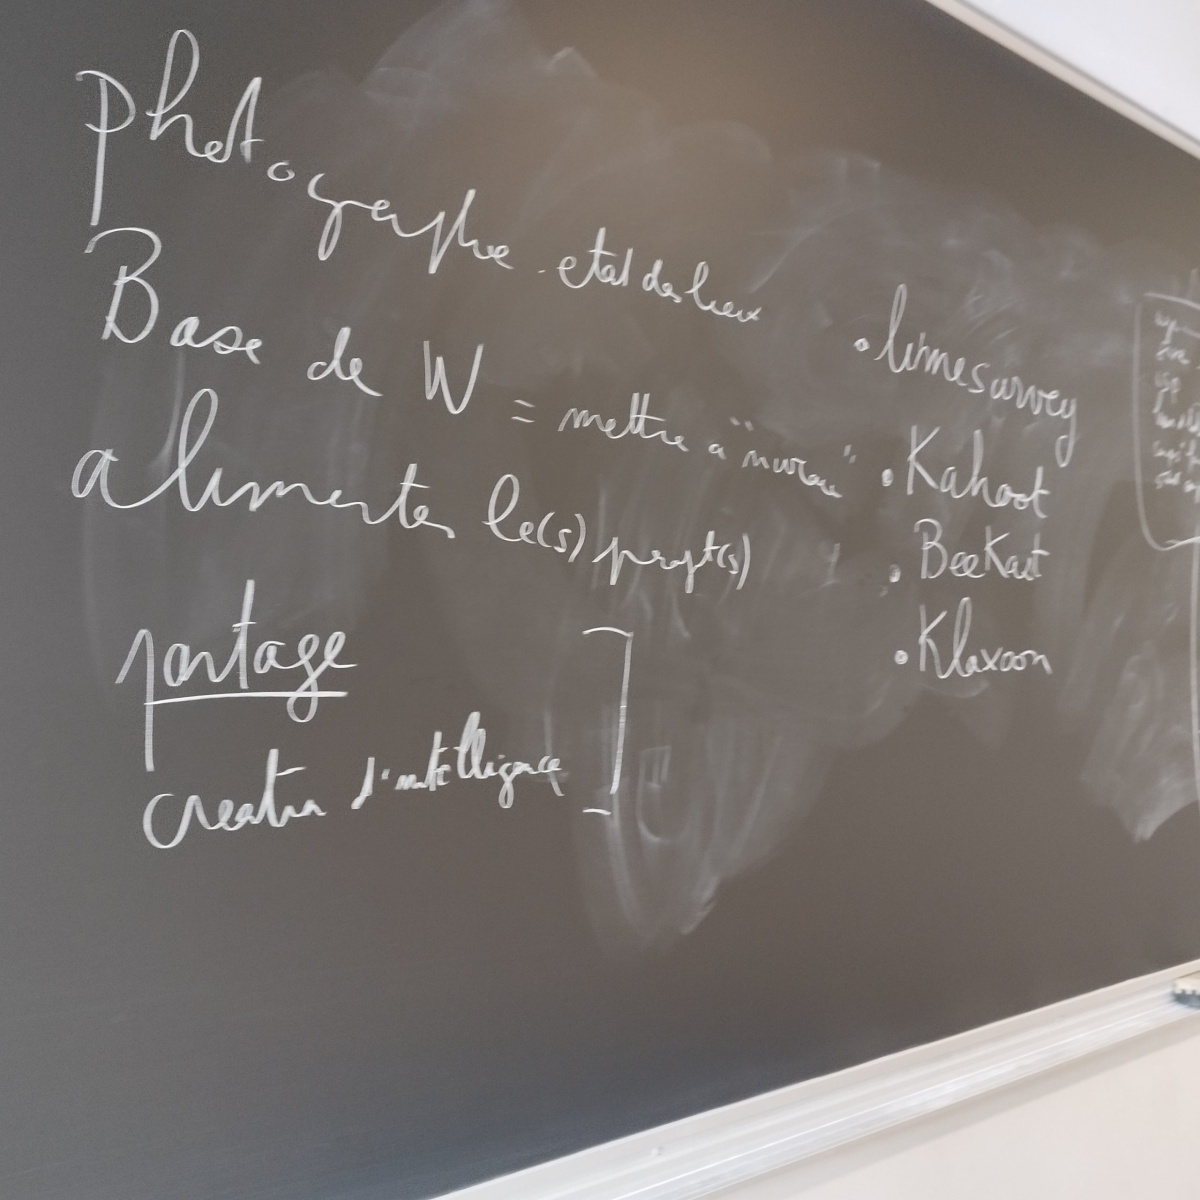 photographie - etat des lieux
Base de W = mettre à "niveau"
alimenter le(s) projet(s)
partage
creation d'intelligence
• limesurvey
• Kahoot
• BeeKast
• Klaxoon